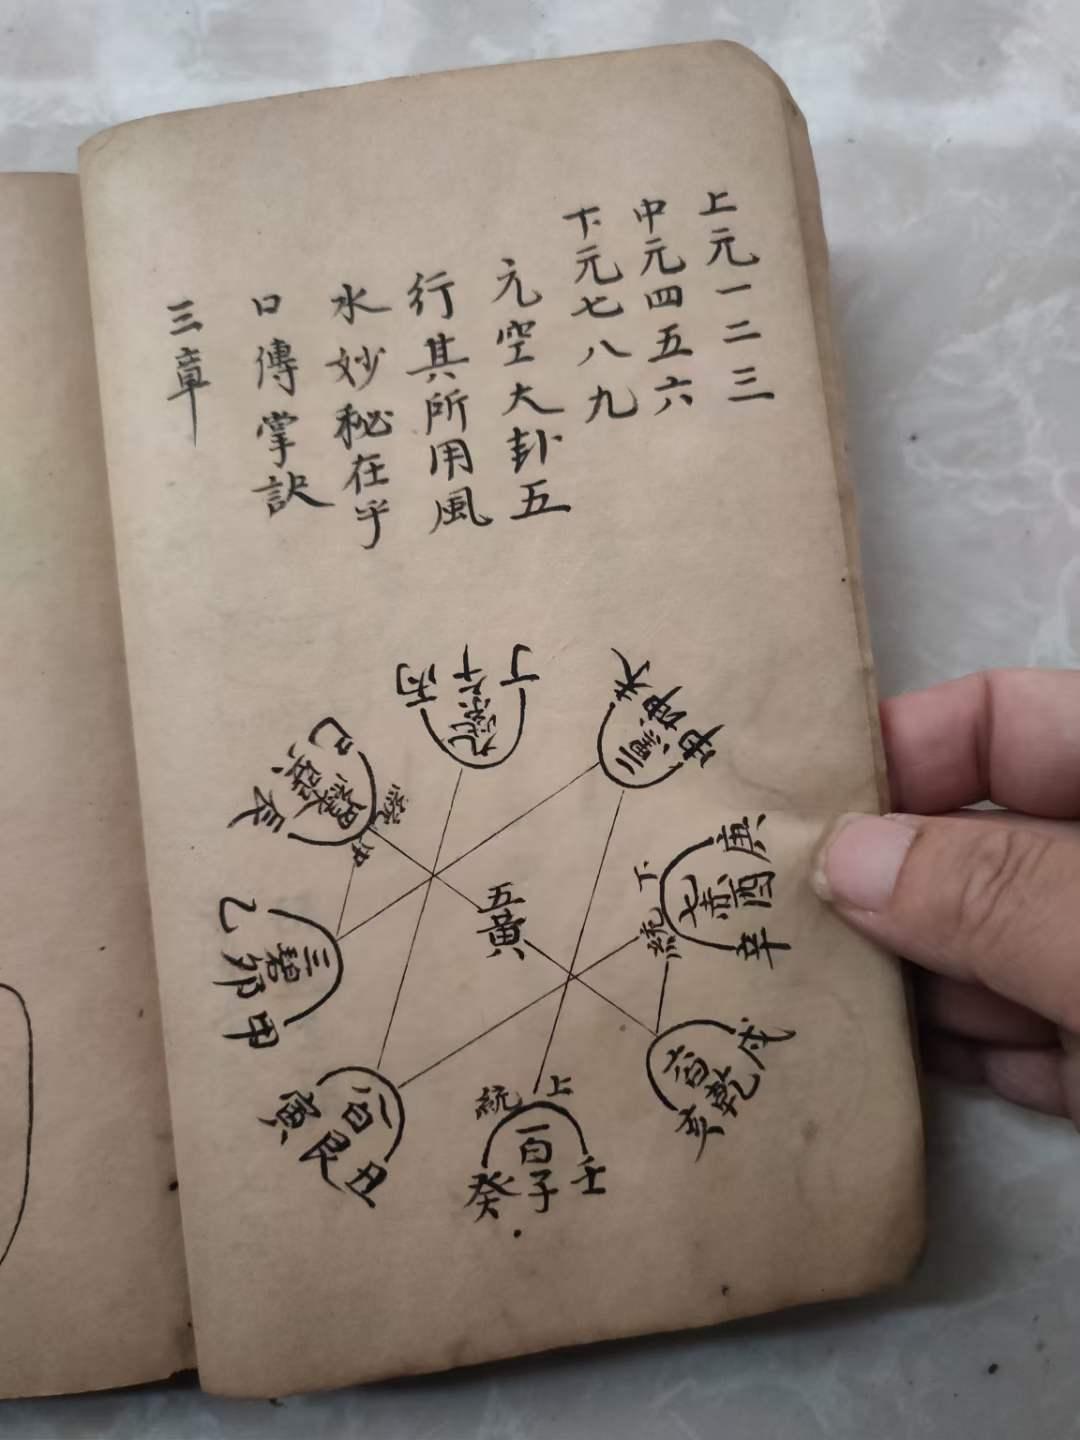 上元一二三
中元四五六
下元七八九
元空大卦五
行其所用風
水妙秘在乎
口傳掌訣
三章
丁
午
丙
九紫
未
坤
申
二黑
巳
巽
辰
四綠
中統
庚
酉
辛
七赤
下統
五黃
乙
卯
甲
三碧
戌
乾
亥
六白
寅
艮
丑
八白
上統
一白
壬
子
癸